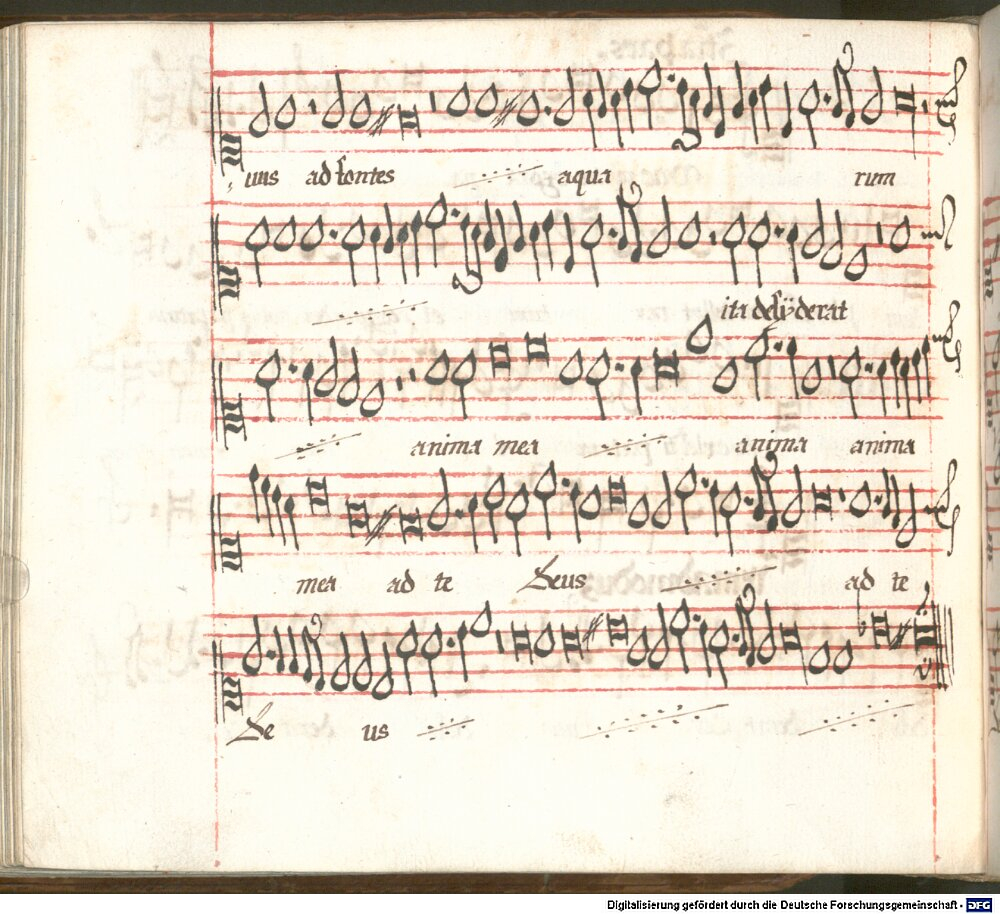 uus ad fontes aqua rum
ita desÿderat
anima mea anima anima
mea ad te Deus ad te
De us
Digitalisierung gefördert durch die Deutsche Forschungsgemeinschaft - DFG